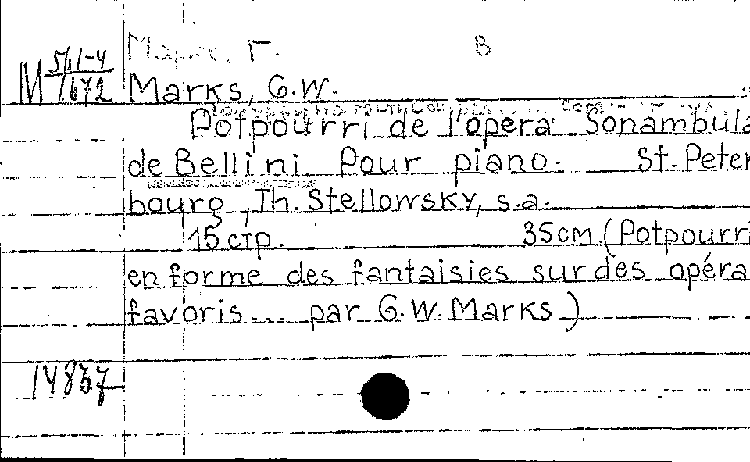 Маркс, Г. В
M 5/1-4 / 1672
Marks, G.W.
Potpourri de l'opéra Sonambula
de Bellini Pour piano. St.Peter
bourg, Th. Stellowsky, s.a.
15 стр. 35см. (Potpourri
en forme des fantaisies sur des opéra
favoris... par G.W. Marks)
14837